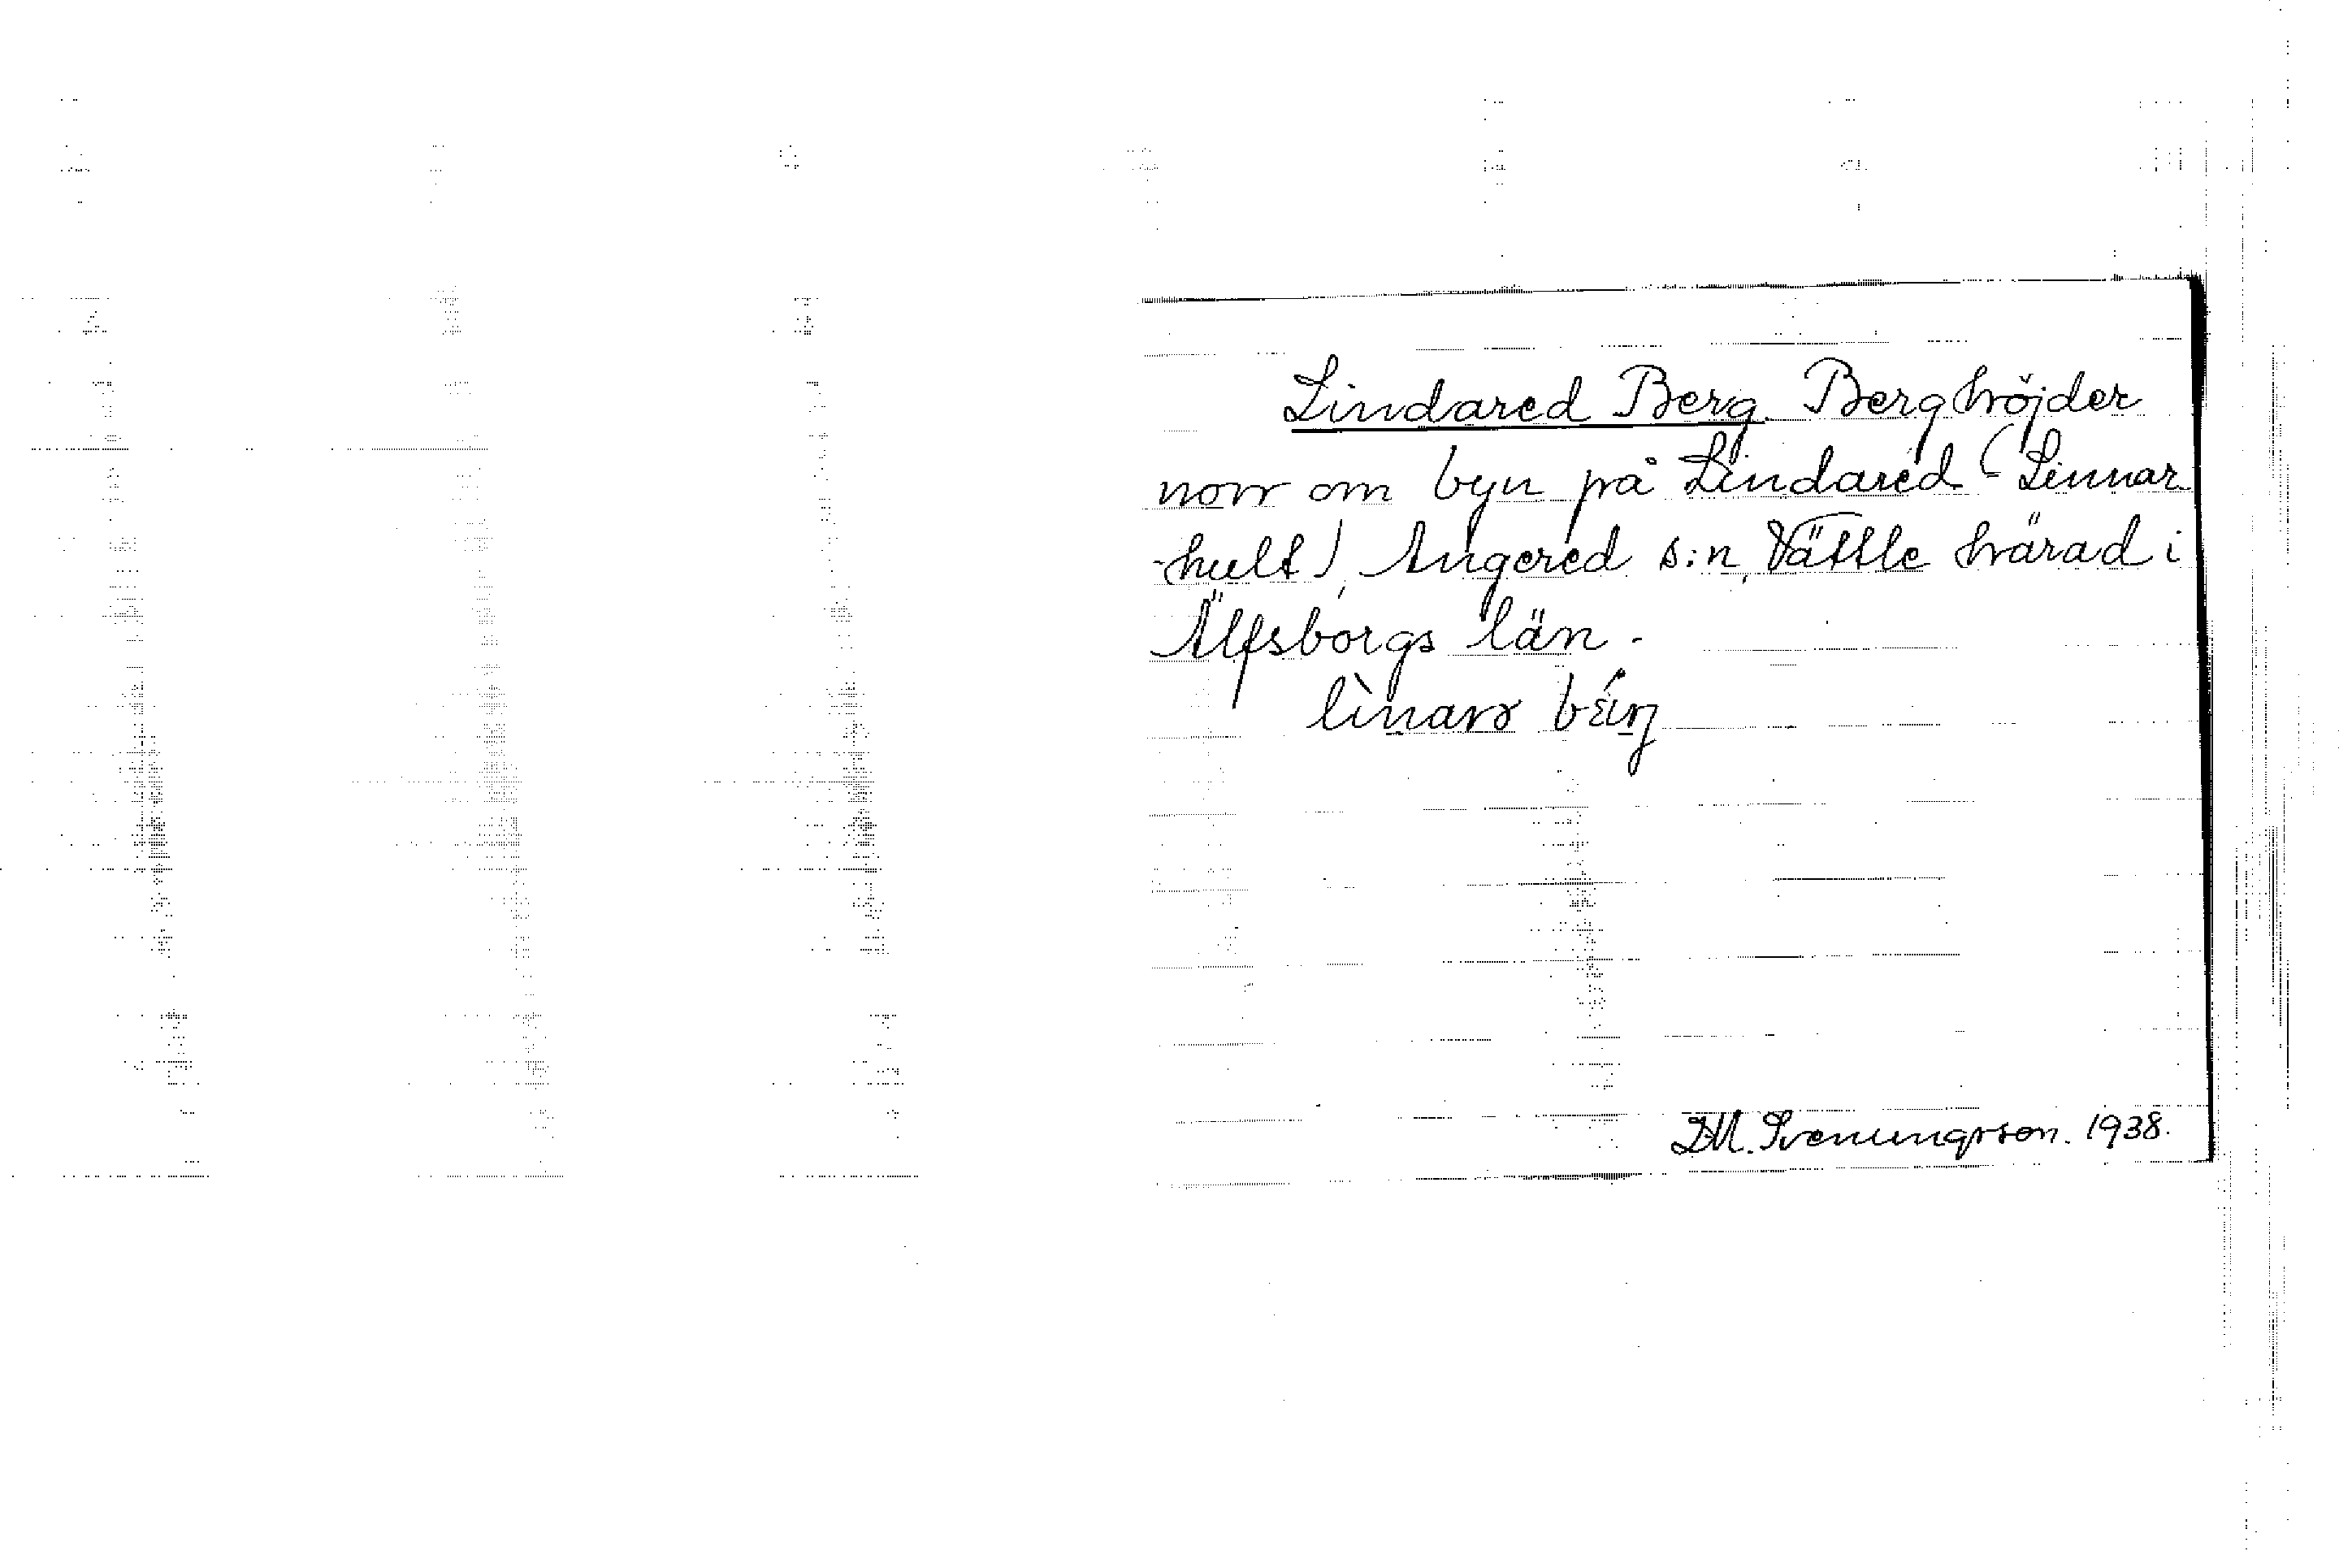 Lindared Berg. Berghöjder
norr om byn på Lindared (Linnar-
-hult), Angered s:n, Vättle härad i
Älfsborgs län.
D.M. Svenungsson. 1938.